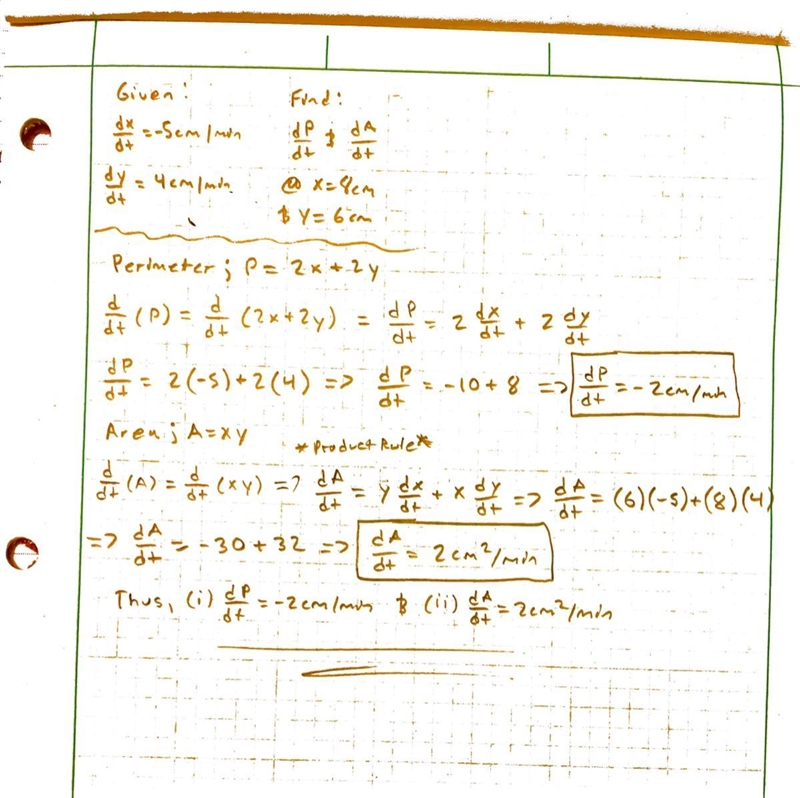 Given: Find:
dx/dt = -5cm/min dP/dt & dA/dt
dy/dt = 4cm/min. @ x=8cm
& Y=6cm
Perimeter; P= 2x+2y
d/dt (P) = d/dt (2x+2y) = dP/dt = 2 dx/dt + 2 dy/dt
dP/dt = 2(-5)+2(4) => dP/dt = -10+8 => dP/dt = -2cm/min
Area; A=xy *Product Rule*
d/dt (A) = d/dt (xy) => dA/dt = y dx/dt + x dy/dt => dA/dt = (6)(-5)+(8)(4)
=> dA/dt = -30+32 => dA/dt = 2cm²/min
Thus, (i) dP/dt = -2cm/min & (ii) dA/dt = 2cm²/min